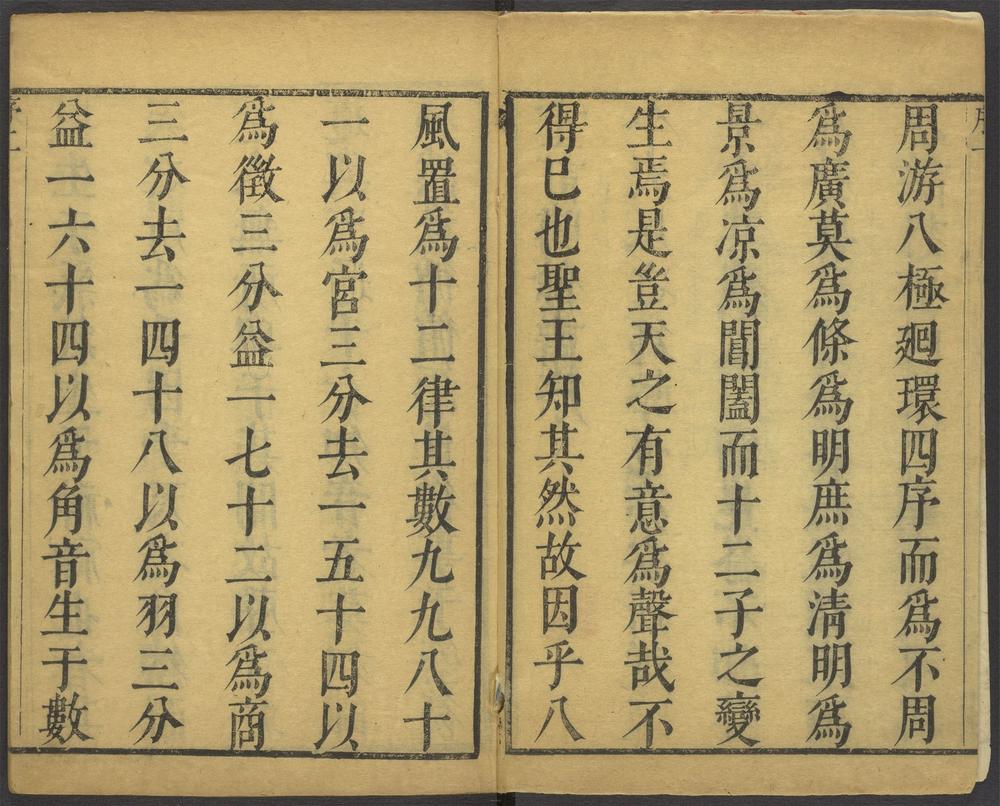 周游八極廻環四序而爲不周
爲廣莫爲條爲明庶爲淸明爲
景爲凉爲閶闔而十二子之變
生焉是豈天之有意爲聲哉不
得已也聖王知其然故因乎八
風置爲十二律其數九九八十
一以爲宮三分去一五十四以
爲徵三分益一七十二以爲商
三分去一四十八以爲羽三分
益一六十四以爲角音生于數